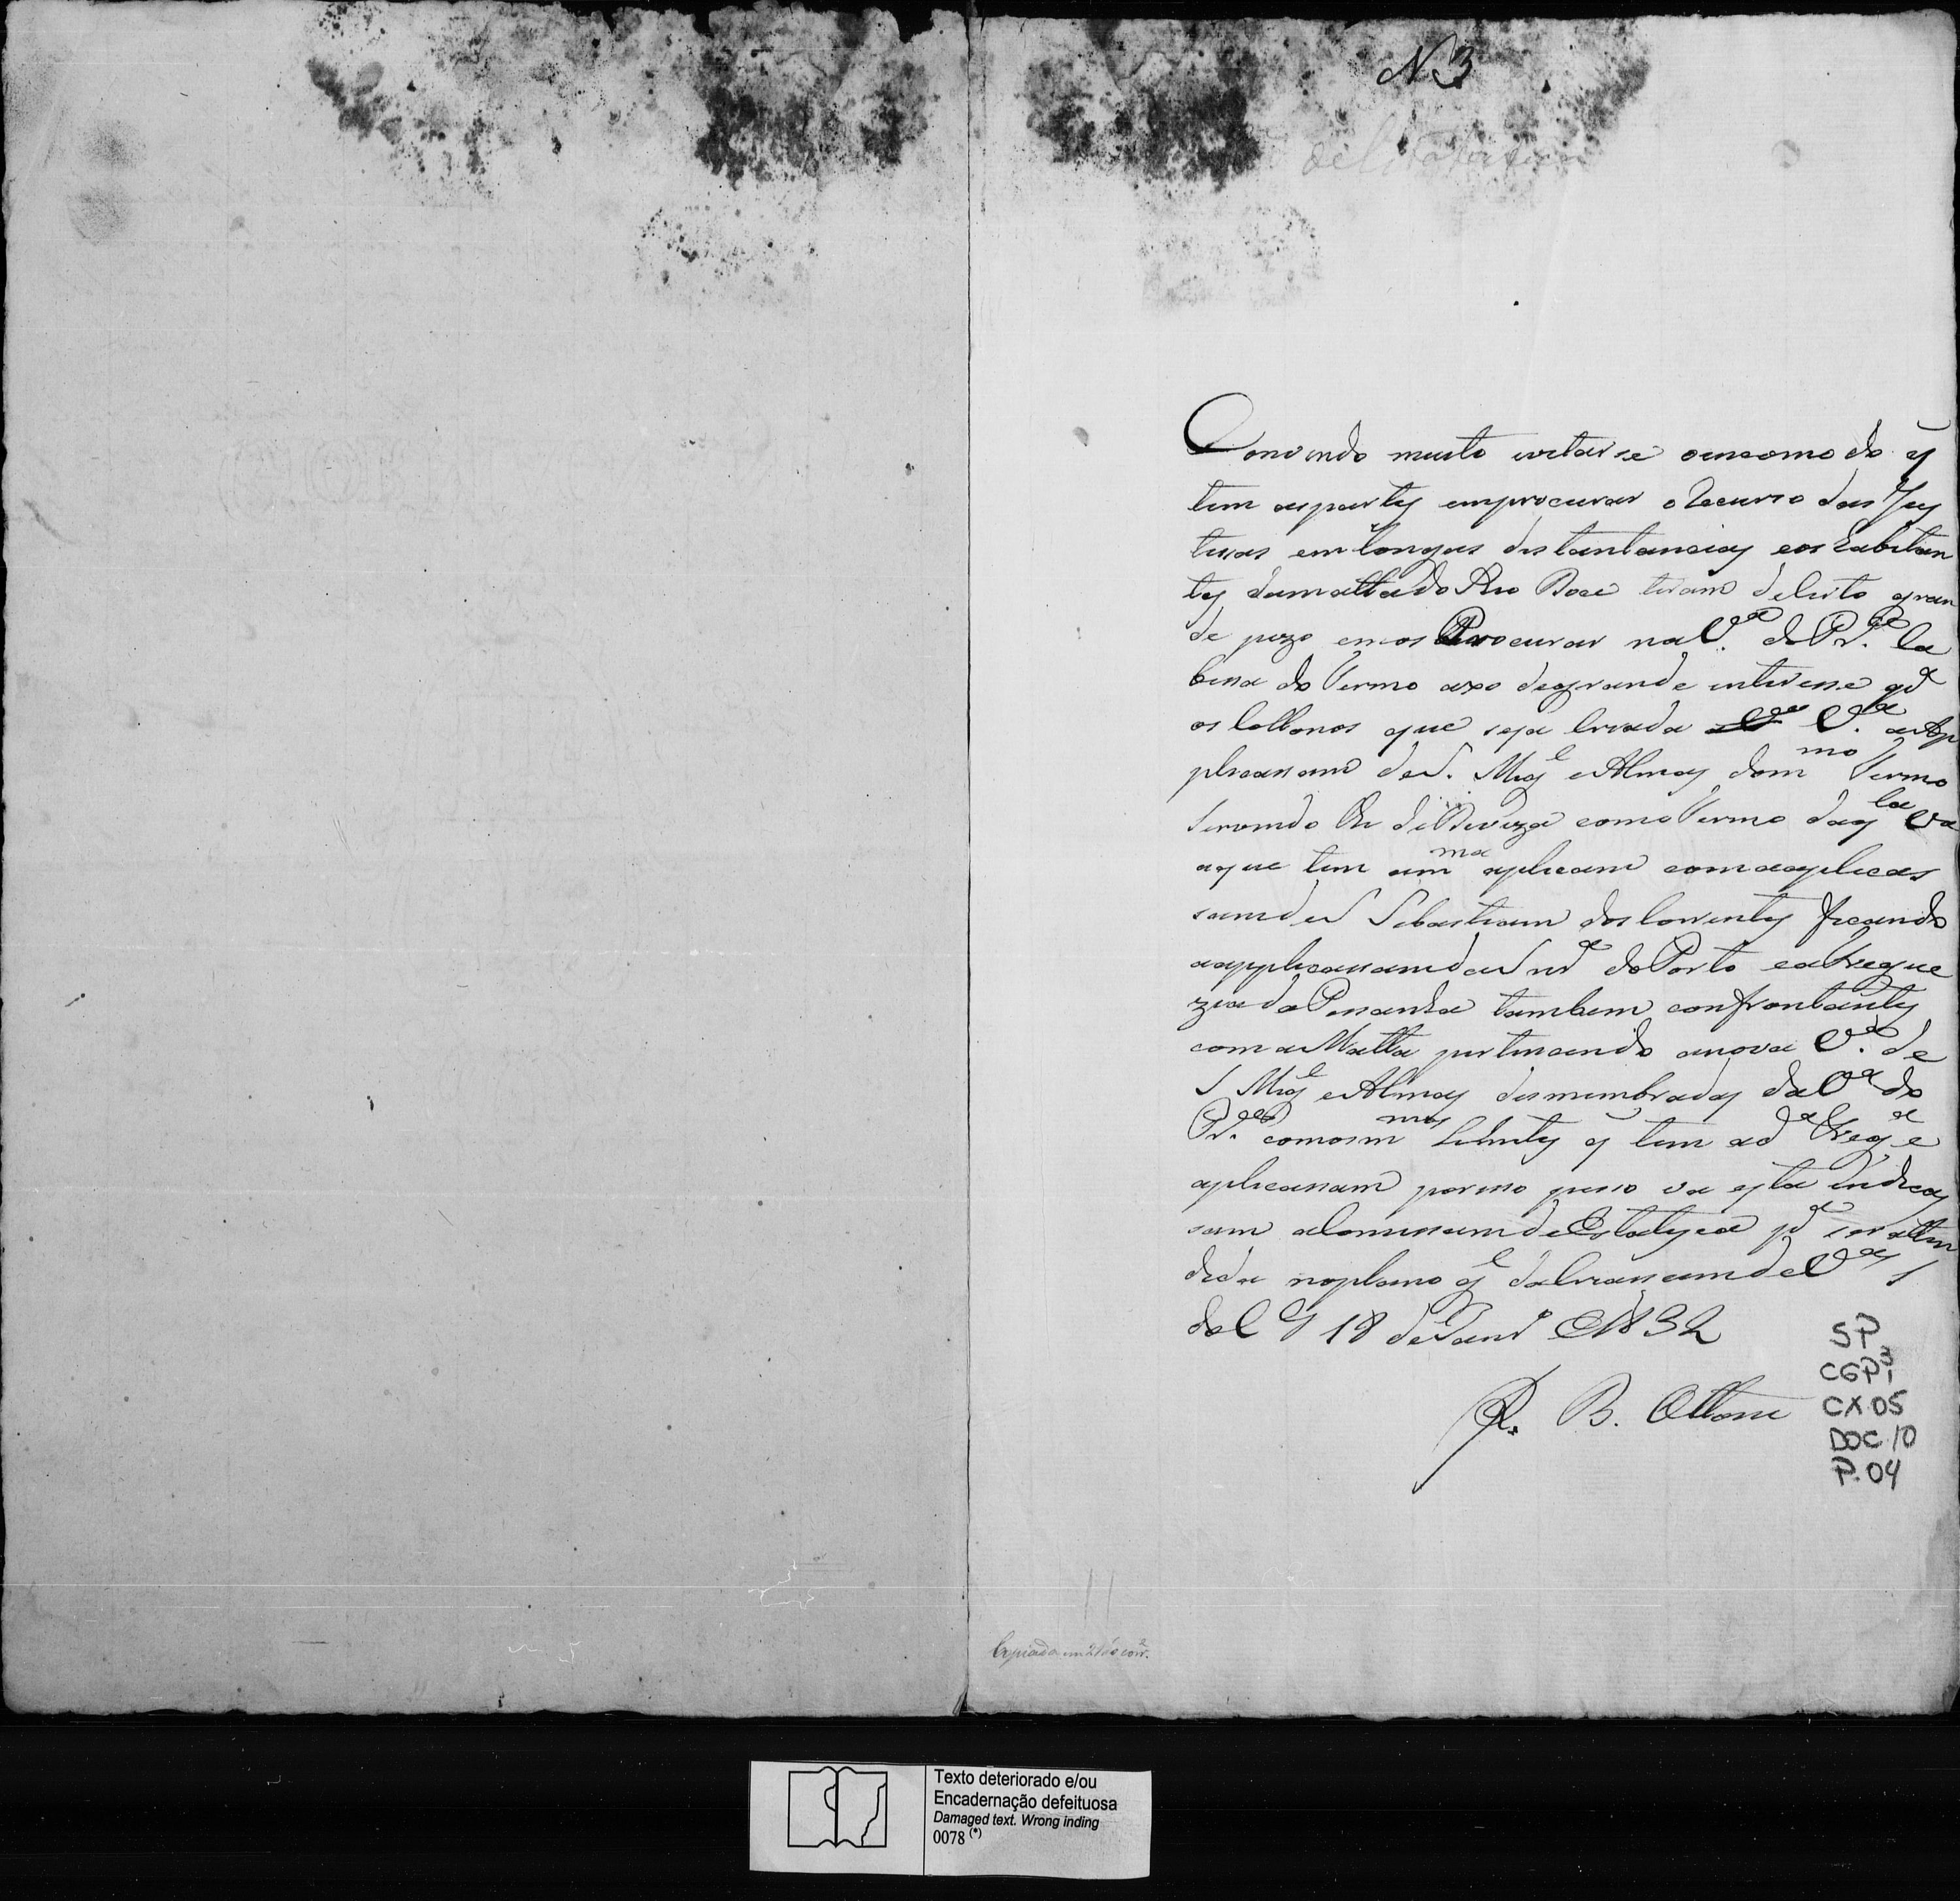 N 3
Convindo muito evitarse oencomodo q̃
tem aspartes emprocurar o Recurso das Jus
tisas em longas distantancias eos habitan
tes damatta do Rio Doce teram deserto gran
de pezo emos Procurar na V.ª do Pr.e Ca
besa do Termo axo degrande enterese pª
os Collonos que seja Criada V.ª a Ap
plicasam de S. Migl e Almas dom mo Termo
Servindo lhe de Diviza como Termo daqla Vª
aque tem am ma aplicam comaaplicas
sam de S Sebastiam dos Correntes ficando
aapplicasam da Snrª do Porto ea Fregue
zia da Pesanha tambem confrontantes
com a Matta pertencendo anova V.ª de
S Migl e Almas desmembradas da Vª do
Pr.e comosm mos Limites q̃ tem a dª Fregª e
aplicasam porisso
sam aComissam de Estatisca pª ser atten
dida noplano gl da Criasam de Vªs S
do C G 18 de Janrº E 1832
R. B. Ottoni
SP
CGP¹ 3
CX.05
DOC.10
P.04
Copiada em
Texto deteriorado e/ou
Encadernação defeituosa
Damaged text. Wrong inding
0078 (*)